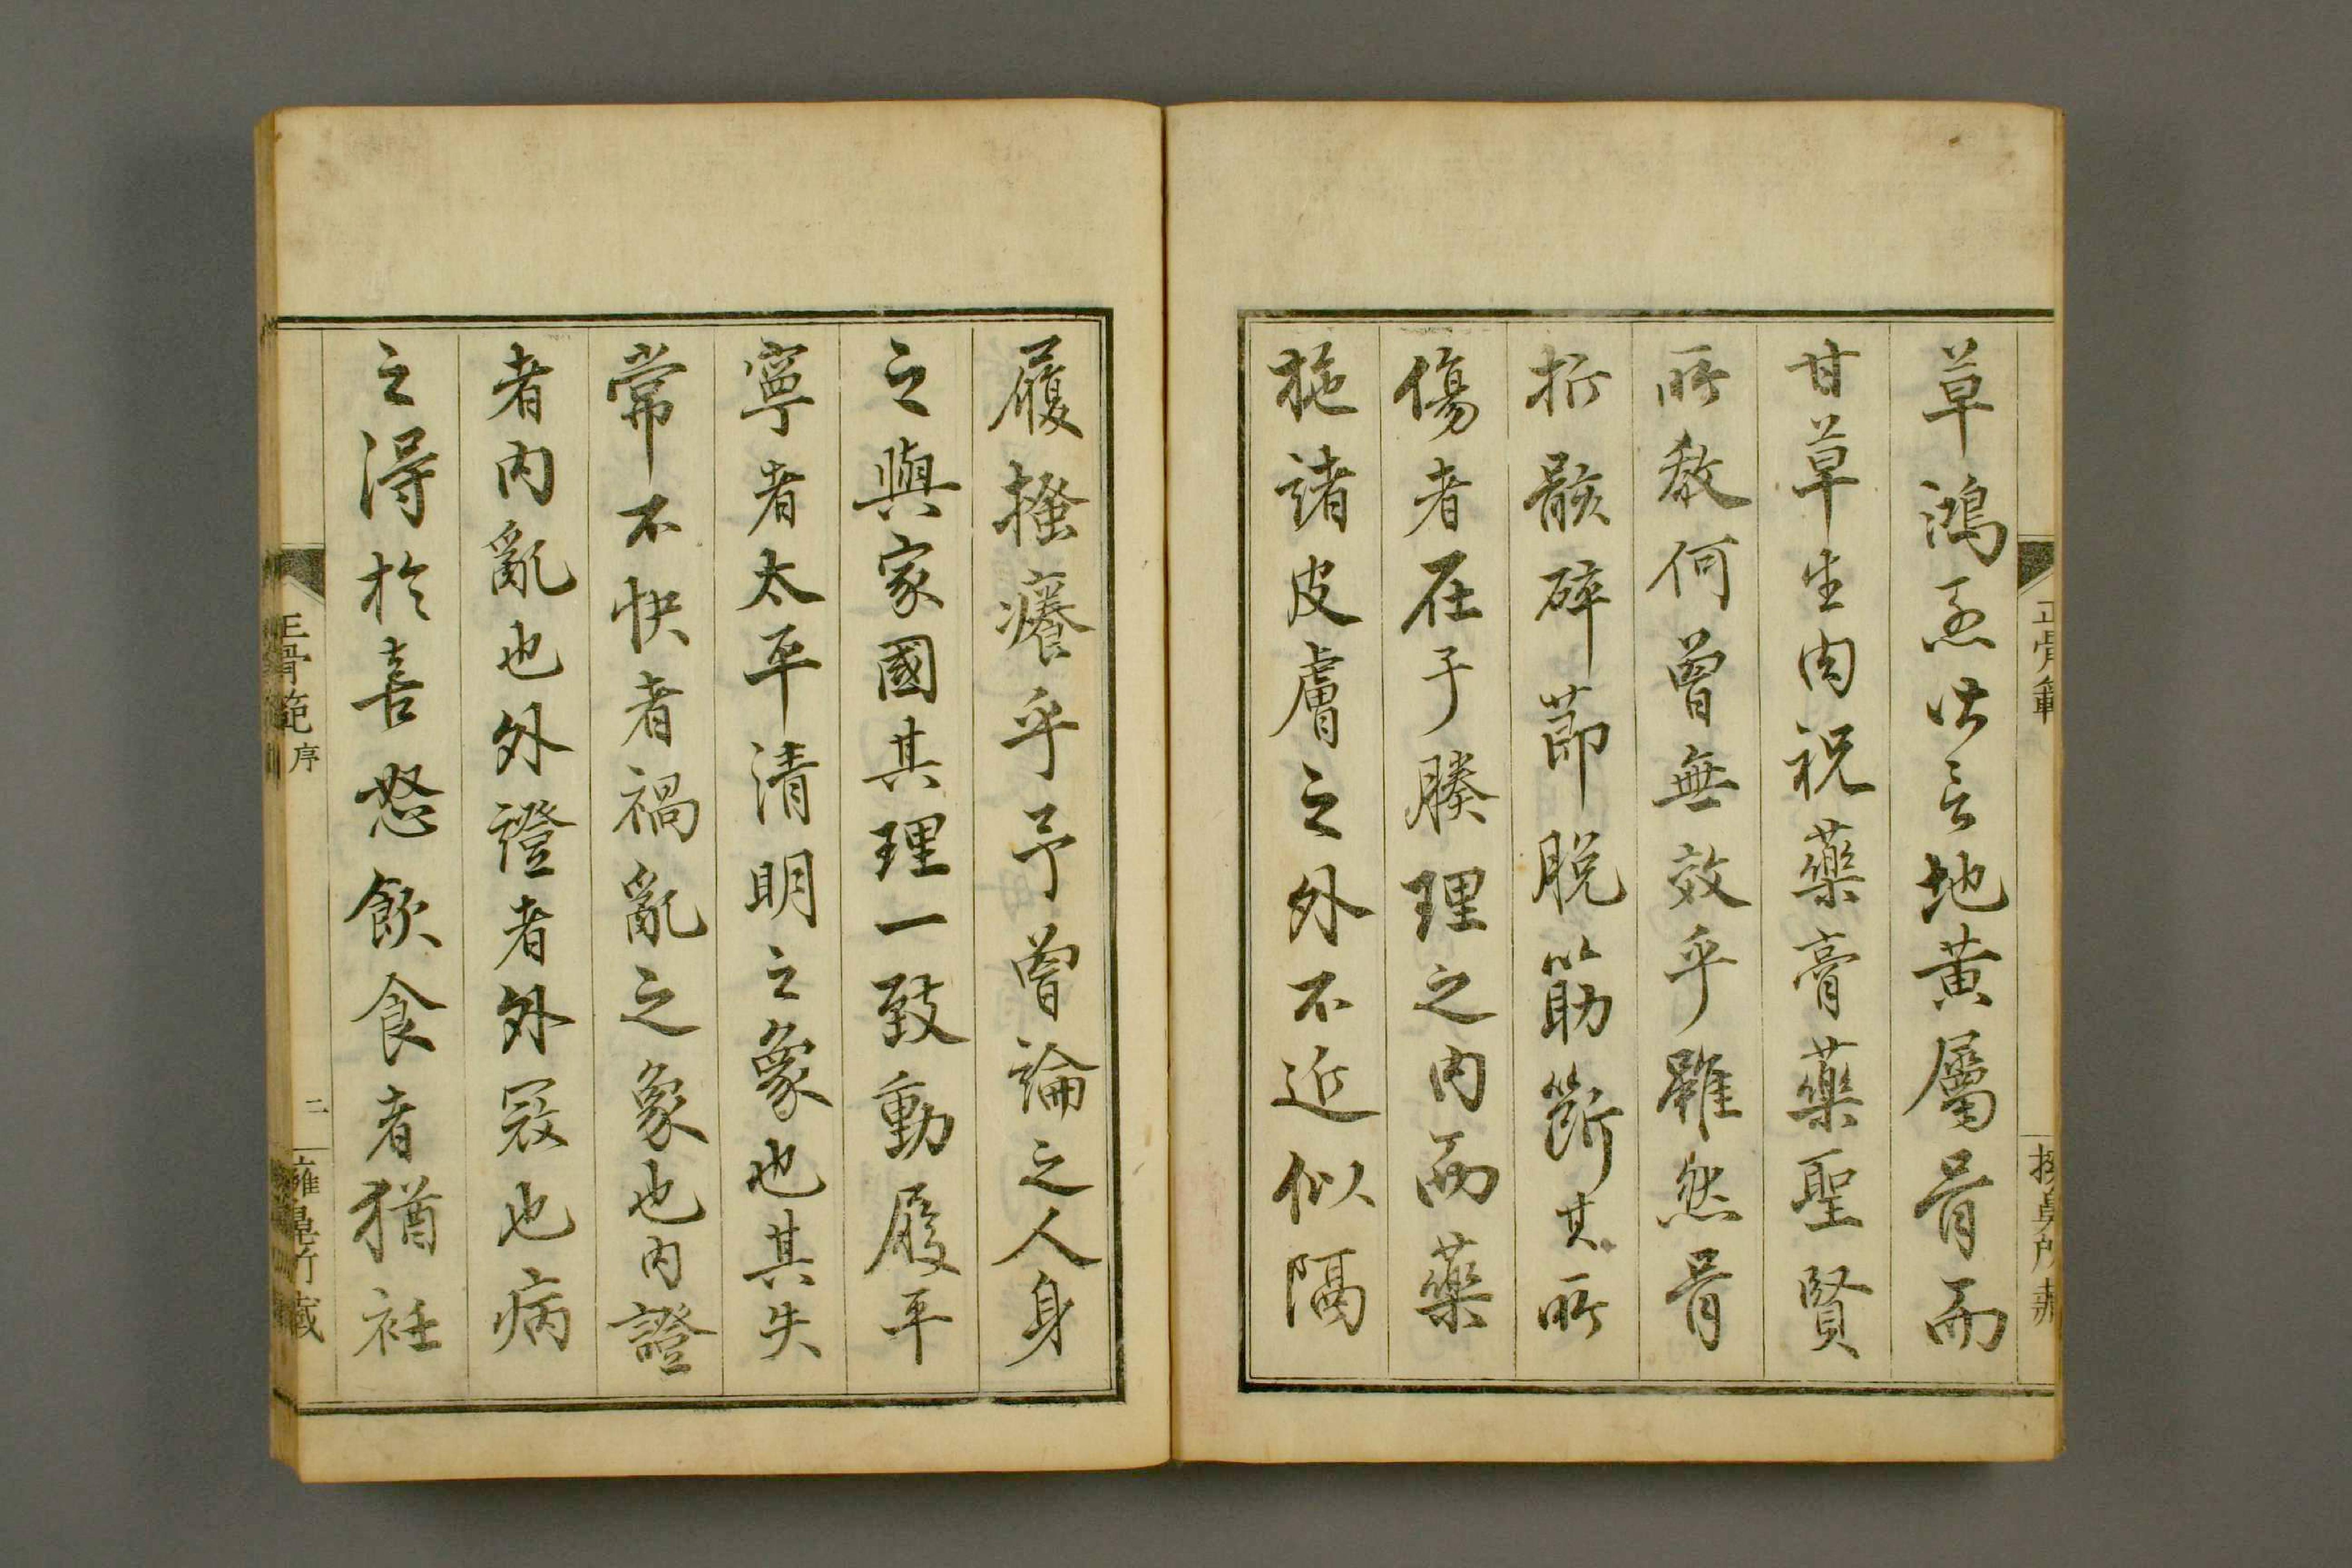 草鴻烝片言地黄屬骨而
甘草生肉祝藥膏藥聖賢
所教何曾無效乎雖然骨
折骸碎節脱筋斷其所
傷者在于腠理之内而藥
施諸皮膚之外不近似隔
履搔癢乎予曾論之人身
之與家國其理一致動履平
寧者太平清明之象也其失
常不快者禍亂之象也内證
者内亂也外證者外寇也病
之得於喜怒飲食者猶衽
正骨範序
二